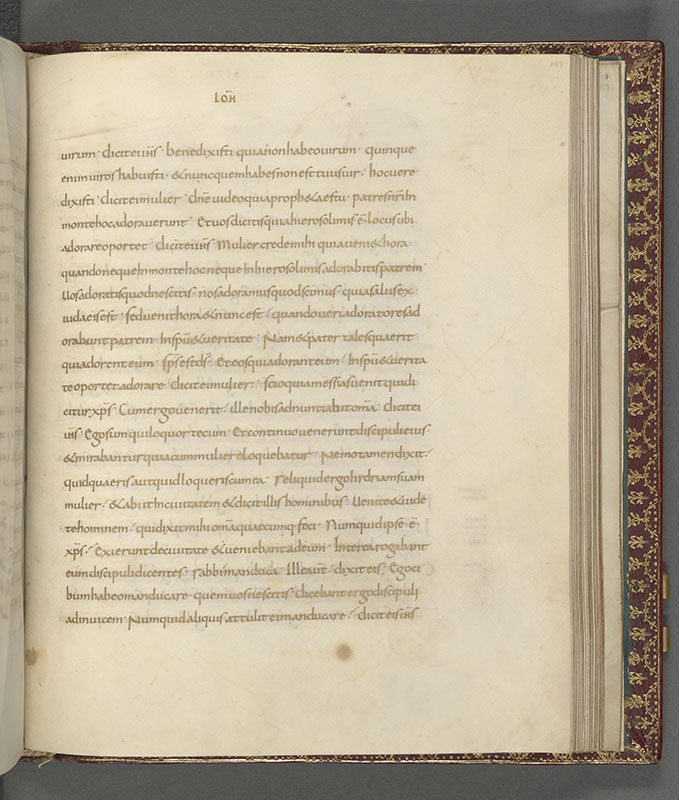 IOH̄
uirum · dicit ei ih̄s · bene dixisti quia non habeo uirum · quinque
enim uiros habuisti · & nunc quem habes non est tuus uir · hoc uere
dixisti · dicit ei mulier · dn̄e uideo quia proph&a es tu · patres nr̄i in
monte hoc adorauerunt · Et uos dicitis quia hierosolimis ē · locus ubi
adorare oportet · dicit ei ih̄s · Mulier crede mihi quia ueni& hora
quando neque in monte hoc neque in hierosolimis adorabitis patrem
Uos adoratis quod nescitis · nos adoramus quod scimus · quia salus ex
iudaeis est · sed uenit hora & nunc est · quando ueri adoratores ad
orabunt patrem · In sp̄u & ueritate · Nam & pater tales quaerit
qui adorent eum · sp̄s est ds̄ · Et eos qui adorant eum · In sp̄u & uerita
te oportet adorare · dicit ei mulier · scio quia messias uenit qui di
citur xp̄s · Cum ergo uenerit · ille nobis adnuntiabit om̄a · dicit ei
ih̄s · Ego sum qui loquor tecum · Et continuo uenerunt discipuli eius
& mirabantur quia cum muliere loquebatur · Nemo tamen dixit ·
quid quaeris aut quid loqueris cum ea · reliquid ergo hydriam suam
mulier · & abiit in ciuitatem & dicit illis hominibus · Uenite & uide
te hominem · qui dixit mihi om̄a quaecumq· feci · Numquid ipse ē
xp̄s · Exierunt de ciuitate & ueniebant ad eum · Interea rogabant
eum discipuli dicentes · rabbi manduca · Ille aūt dixit eis · Ego ci
bum habeo manducare · quem uos nescitis · dicebant ergo discipuli
ad inuicem · Numquid aliquis attulit ei manducare · dicit eis ih̄s